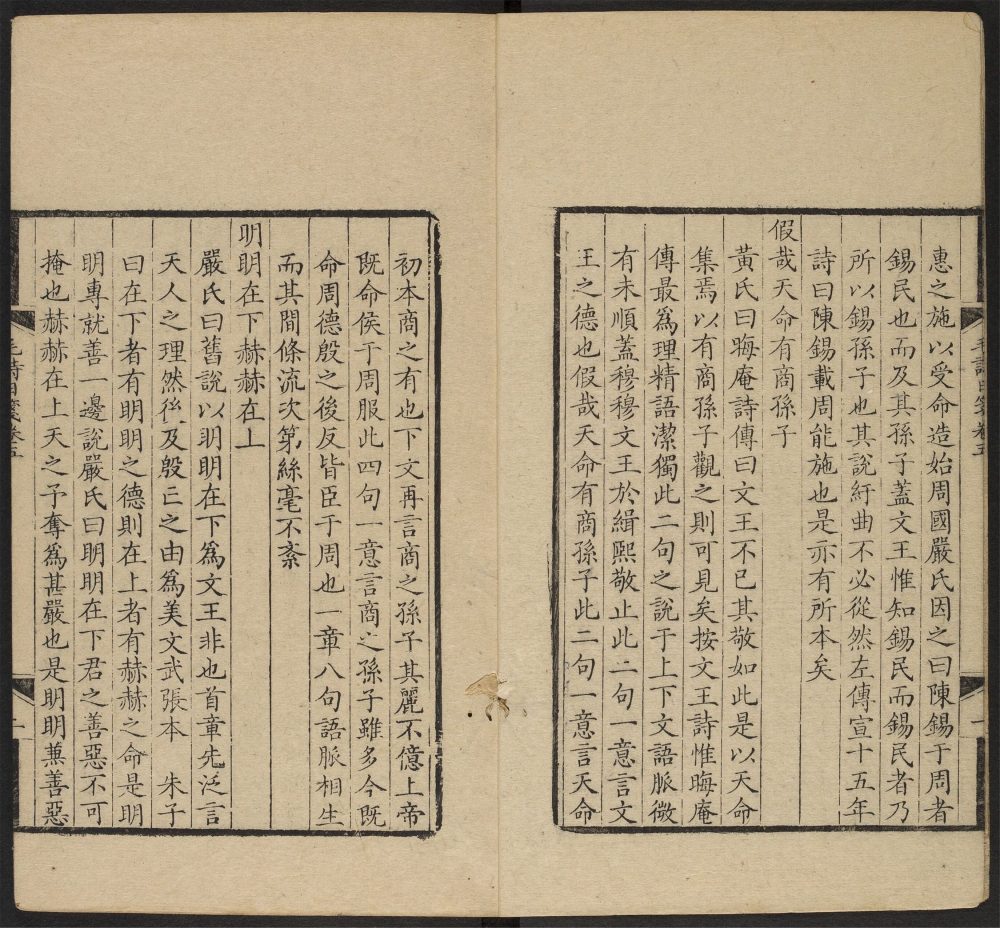 惠之施以受命造始周國嚴氏因之曰陳錫于周者
錫民也而及其孫子蓋文王惟知錫民而錫民者乃
所以錫孫子也其說紆曲不必從然左傳宣十五年
詩曰陳錫載周能施也是亦有所本矣
假哉天命有商孫子
黃氏曰晦庵詩傳曰文王不已其敬如此是以天命
集焉以有商孫子觀之則可見矣按文王詩惟晦庵
傳最爲理精語潔獨此二句之說于上下文語脈微
有未順蓋穆穆文王於緝熙敬止此二句一意言文
王之德也假哉天命有商孫子此二句一意言天命
初本商之有也下文再言商之孫子其麗不億上帝
既命侯于周服此四句一意言商之孫子雖多今既
命周德殷之後反皆臣于周也一章八句語脈相生
而其間條流次第絲毫不紊
明明在下赫赫在上
嚴氏曰舊說以明明在下爲文王非也首章先泛言
天人之理然後及殷亡之由爲美文武張本 朱子
曰在下者有明明之德則在上者有赫赫之命是明
明專就善一邊說嚴氏曰明明在下君之善惡不可
掩也赫赫在上天之予奪爲甚嚴也是明明兼善惡
毛詩日箋卷五
一